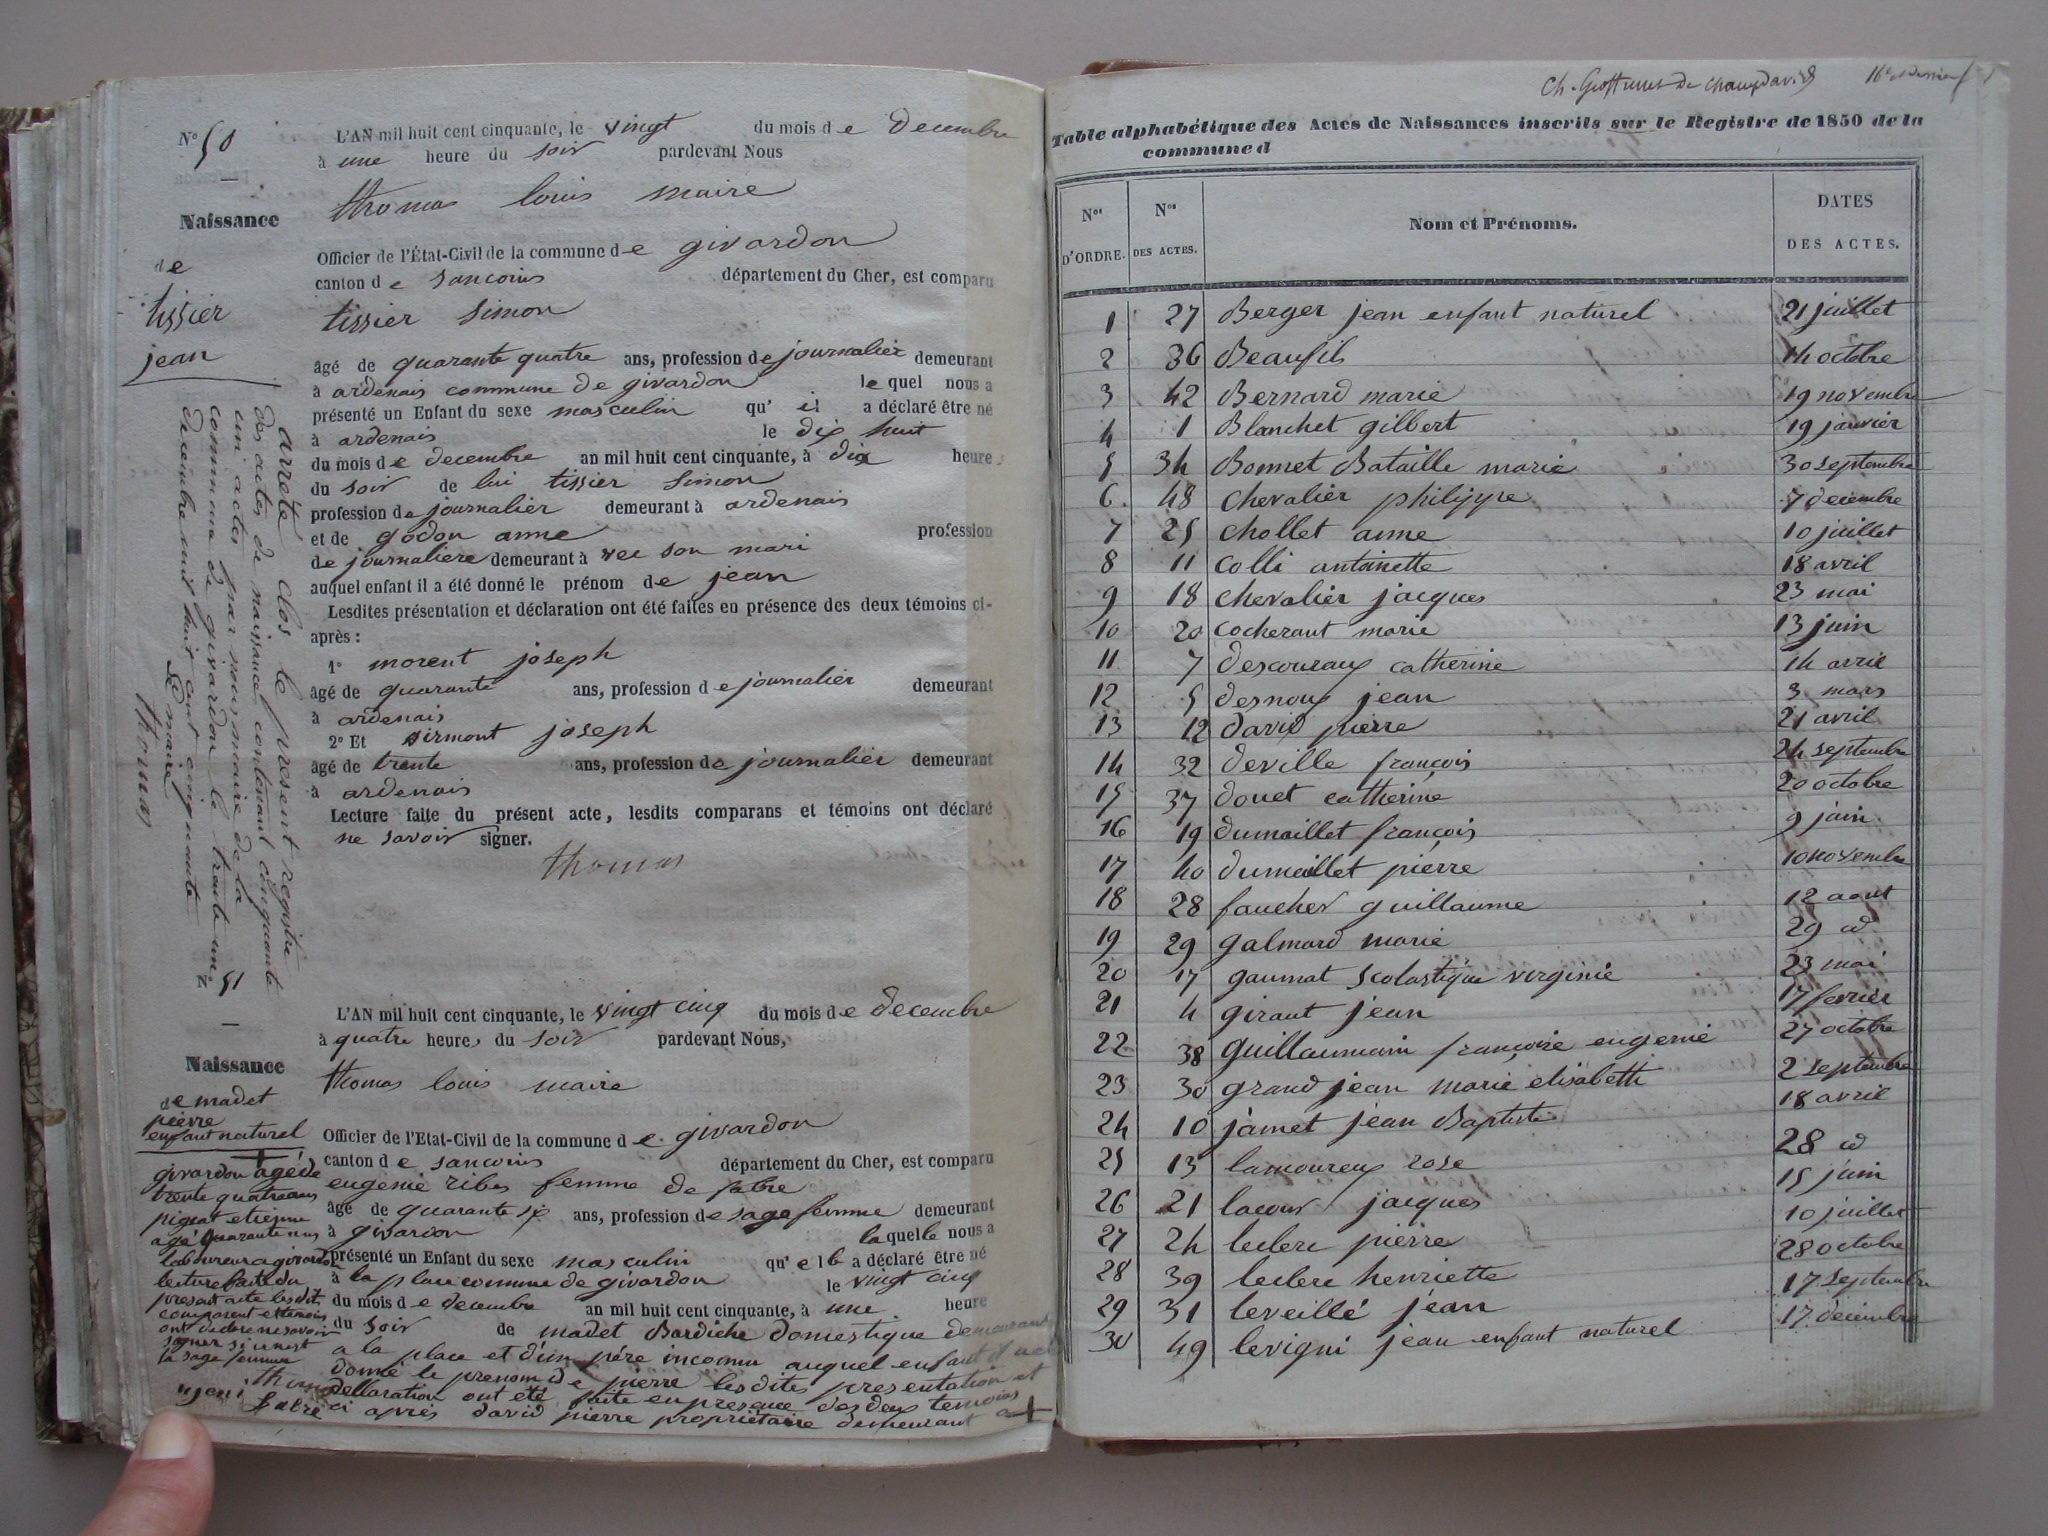 N° 50
L'AN mil huit cent cinquante, le vingt du mois de decembre
à une heure du soir pardevant Nous
thomas louis maire
Naissance
Officier de l'État-Civil de la commune de givardon
de
canton de sancoins département du Cher, est comparu
tissier
tissier simon
jean
âgé de quarante quatre ans, profession de journalier demeurant
à ardenais commune de givardon lequel nous a
présenté un Enfant du sexe masculin qu' il a déclaré être né
à ardenais le dix huit
du mois de decembre an mil huit cent cinquante, à dix heures
du soir de lui tissier simon
profession de journalier demeurant à ardenais
et de godon anne profession
de journaliere demeurant à vec son mari
auquel enfant il a été donné le prénom de jean
Lesdites présentation et déclaration ont été faites en présence des deux témoins ci-
après :
1° morent joseph
âgé de quarante ans, profession de journalier demeurant
à ardenais
2° Et sirmont joseph
âgé de trente ans, profession de journalier demeurant
à ardenais
Lecture faite du présent acte, lesdits comparans et témoins ont déclaré
ne savoir signer.
thomas
arreté clos le present registre
des actes de naissance contenant cinquante
un actes par nous maire de la
commune de givardon le trente un
decembre mil huit cent cinquante
Le maire
thomas
N° 51
L'AN mil huit cent cinquante, le vingt cinq du mois de decembre
à quatre heures du soir pardevant Nous,
Naissance
thomas louis maire
de madet
pierre
enfant naturel
Officier de l'Etat-Civil de la commune de givardon
canton de sancoins département du Cher, est comparu
eugenie ribes femme de fabre
âgé de quarante six ans, profession de sage femme demeurant
à givardon laquelle nous a
présenté un Enfant du sexe masculin qu' elle a déclaré être né
à la place commune de givardon le vingt cinq
du mois de decembre an mil huit cent cinquante, à une heure
du soir de madet Bardiche domestique demeurant
a la place et d'un pére inconnu auquel enfant il a eté
donné le prenom de pierre lesdites presentation et
declaration ont eté faite en presence des deux temoins
ci apres david pierre propriétaire demeurant a +
+
givardon agé de
trente quatre ans
pignat etienne
agé quarante ans
laboureur a givardon
lecture faite du
present acte lesdits
comparent et temoins
ont declaré ne savoir
signer si ce nest
la sage femme
thomas
ujeni fabre
Ch.
Table alphabétique des Actes de Naissances inscrits sur le Registre de 1850 de la
commune d
Nos D'ORDRE. Nos DES ACTES. Nom et Prénoms. DATES DES ACTES.
1 27 Berger jean enfant naturel 21 juillet
2 36 Beaufils 14 octobre
3 42 Bernard marie 19 novembre
4 1 Blanchet gilbert 19 janvier
5 34 Bonnet Bataille marie 30 septembre
6 48 chevalier philippe 7 decembre
7 25 chollet anne 10 juillet
8 11 colli antoinette 18 avril
9 18 chevalier jacques 23 mai
10 20 cocherant marie 13 juin
11 7 descoureaux catherine 14 avril
12 5 desnoux jean 3 mars
13 12 david pierre 21 avril
14 32 deville françois 24 septembre
15 37 douet catherine 20 octobre
16 19 dumaillet françois 9 juin
17 40 dumaillet pierre 10 novembre
18 28 faucher guillaume 12 aout
19 29 galmard marie 29 id
20 17 gaumat scolastique virginie 23 mai
21 4 giraut jean 17 fevrier
22 38 guillaumain françoise eugenie 27 octobre
23 30 grand jean marie elisabeth 2 septembre
24 10 jamet jean Baptiste 18 avril
25 13 lamoureux rose 28 id
26 21 lacour jacques 15 juin
27 24 leclerc pierre 10 juillet
28 39 leclerc henriette 28 octobre
29 31 leveillé jean 17 septembre
30 49 levigni jean enfant naturel 17 decembre